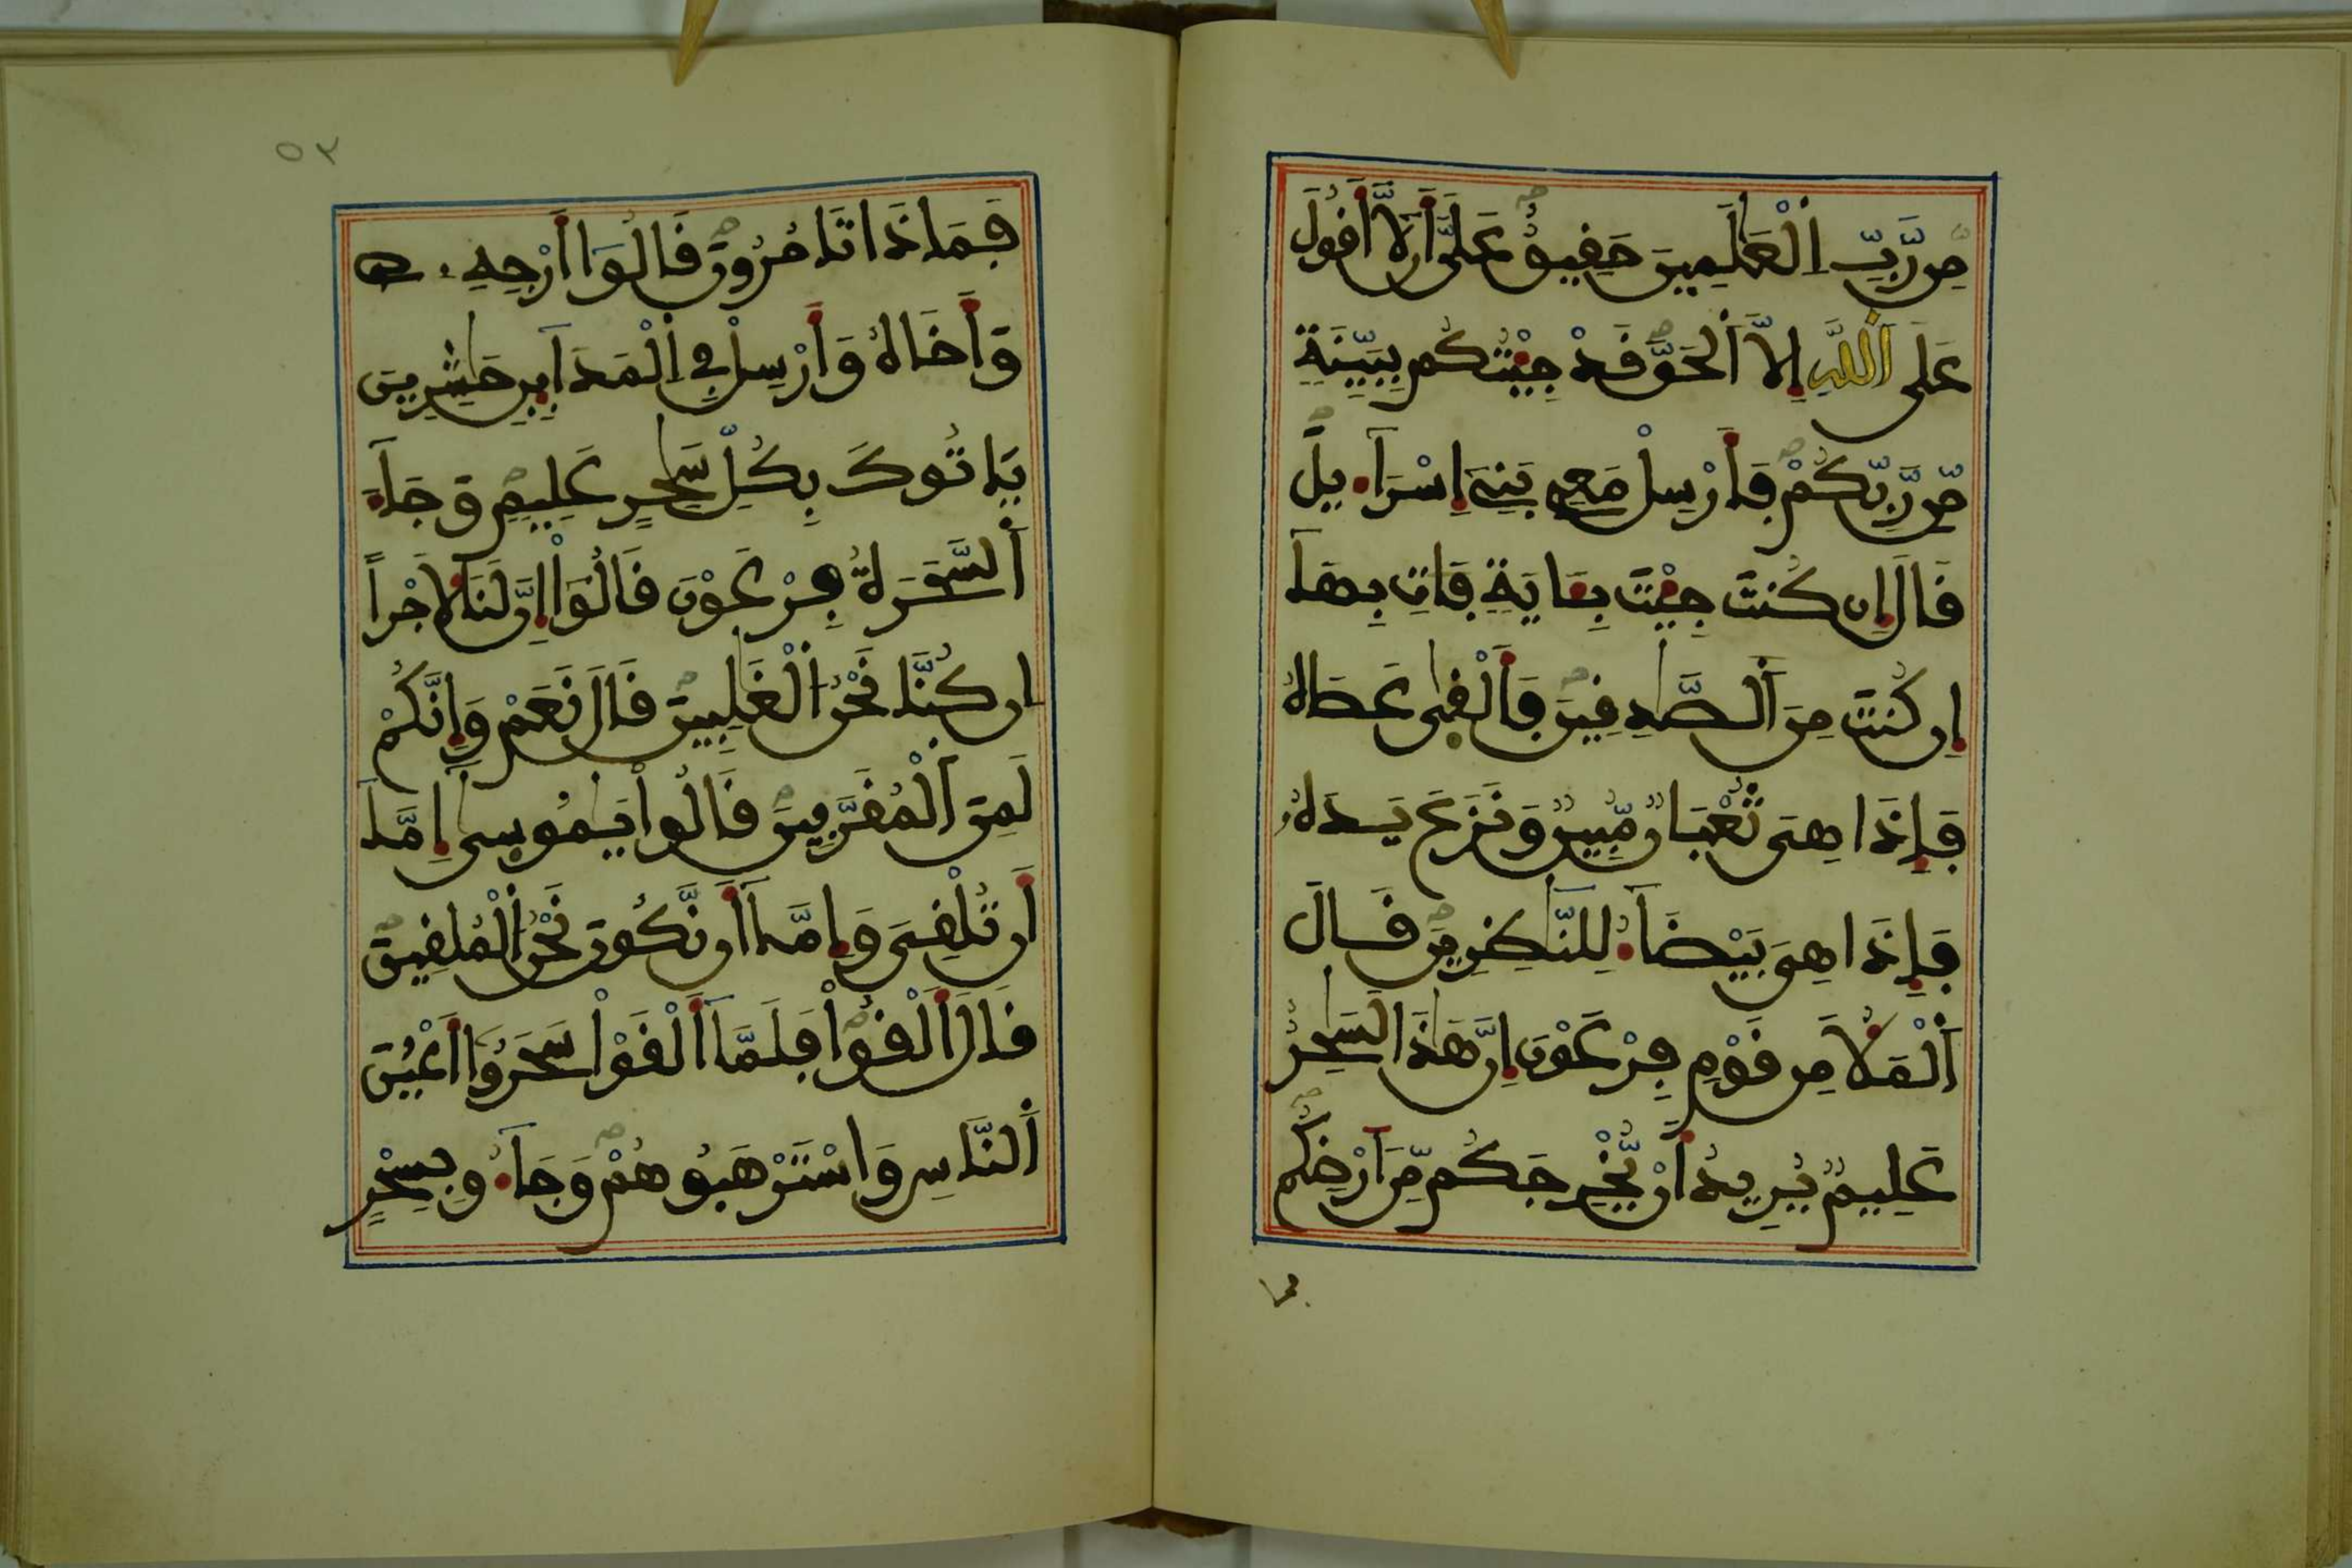 مِّن رَّبِّ اِ۬لْعَٰلَمِينَ حَقِيقٌ عَلَيَّ أَن لَّا أَقُولَ
عَلَى اَ۬للَّهِ إِلَّا اَ۬لْحَقَّ قَدْ جِئْتُكُم بِبَيِّنَةٖ
مِّن رَّبِّكُمْ فَأَرْسِلْ مَعِے بَنِےٓ إِسْرَآءِيلَ
قَالَ إِن كُنتَ جِئْتَ بِـَٔايَةٖ فَاتِ بِهَآ
إِن كُنتَ مِنَ اَ۬لصَّٰدِقِينَ فَأَلْقَىٰ عَصَاهُ
فَإِذَا هِىَ ثُعْبَانٞ مُّبِينٞ وَنَزَعَ يَدَهُۥ
فَإِذَا هِىَ بَيْضَآءُ لِلنَّٰظِرِينَ قَالَ
اَ۬لْمَلَأُ مِن قَوْمِ فِرْعَوْنَ إِنَّ هَٰذَا لَسَٰحِرٌ
عَلِيمٞ يُرِيدُ أَنْ يُّخْرِجَكُم مِّنَ اَرْضِكُمْ
فما
٥٣
فَمَاذَا تَامُرُونَ قَالُوٓاْ أَرْجِهِۦ
وَأَخَاهُ وَأَرْسِلْ فِے اِ۬لْمَدَآئِنِ حَٰشِرِينَ
يَاتُوكَ بِكُلِّ سَٰحِرٍ عَلِيمٖ وَجَآءَ
اَ۬لسَّحَرَةُ فِرْعَوْنَ قَالُوٓاْ إِنَّ لَنَا لَأَجْراً
اِن كُنَّا نَحْنُ اُ۬لْغَٰلِبِينَ قَالَ نَعَمْ وَإِنَّكُمْ
لَمِنَ اَ۬لْمُقَرَّبِينَ قَالُواْ يَٰمُوسَىٰٓ إِمَّآ
أَن تُلْقِىَ وَإِمَّآ أَن نَّكُونَ نَحْنُ اُ۬لْمُلْقِينَ
قَالَ أَلْقُواْ فَلَمَّآ أَلْقَوْاْ سَحَرُوٓاْ أَعْيُنَ
اَ۬لنَّاسِ وَاسْتَرْهَبُوهُمْ وَجَآءُو بِسِحْرٍ